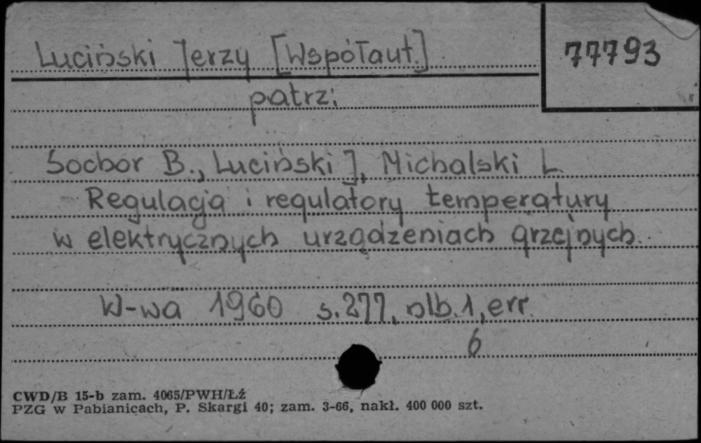 Luciński Jerzy [Współaut.]
77793
patrz:
Sochor B., Luciński J., Michalski L.
Regulacja i regulatory temperatury
w elektrycznych urządzeniach grzejnych.
W-wa 1960 s. 277, nlb. 1, err.
6
CWD/B 15-b zam. 4065/PWH/Łź
PZG w Pabianicach, P. Skargi 40; zam. 3-66, nakł. 400 000 szt.